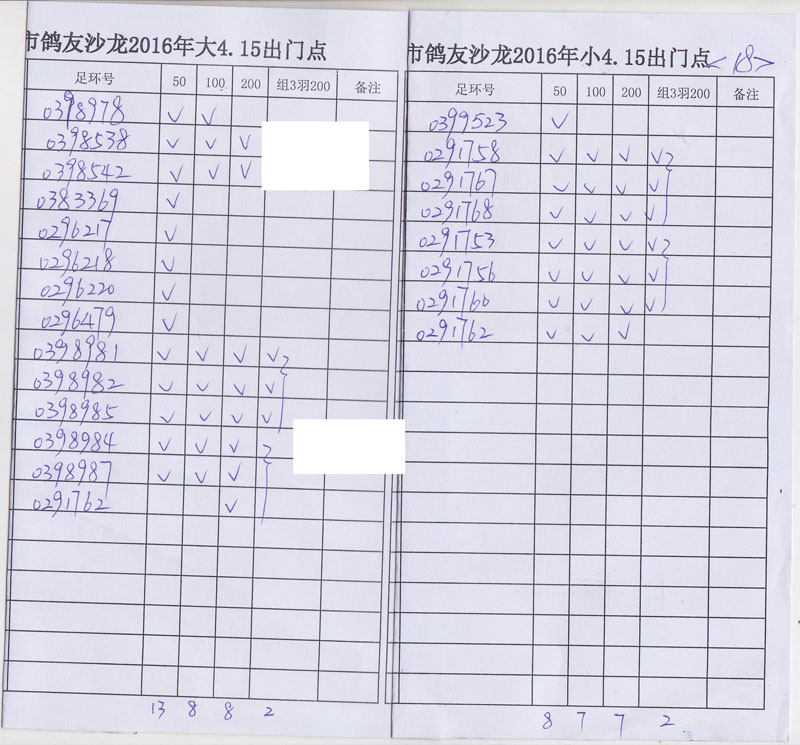 市鸽友沙龙2016年大4.15出门点
足环号 50 100 200 组3羽200 备注
0398978 ✓ ✓
0398538 ✓ ✓ ✓
0398542 ✓ ✓ ✓
0383369 ✓
0296217 ✓
0296218 ✓
0296220 ✓
0296479 ✓
0398981 ✓ ✓ ✓ ✓
0398982 ✓ ✓ ✓ ✓
0398985 ✓ ✓ ✓ ✓
0398984 ✓ ✓ ✓
0398987 ✓ ✓ ✓
0291762 ✓
13 8 8 2
市鸽友沙龙2016年小4.15出门点 <18>
足环号 50 100 200 组3羽200 备注
0399523 ✓
0291758 ✓ ✓ ✓ ✓
0291767 ✓ ✓ ✓ ✓
0291768 ✓ ✓ ✓ ✓
0291753 ✓ ✓ ✓ ✓
0291756 ✓ ✓ ✓ ✓
0291760 ✓ ✓ ✓ ✓
0291762 ✓ ✓ ✓
8 7 7 2